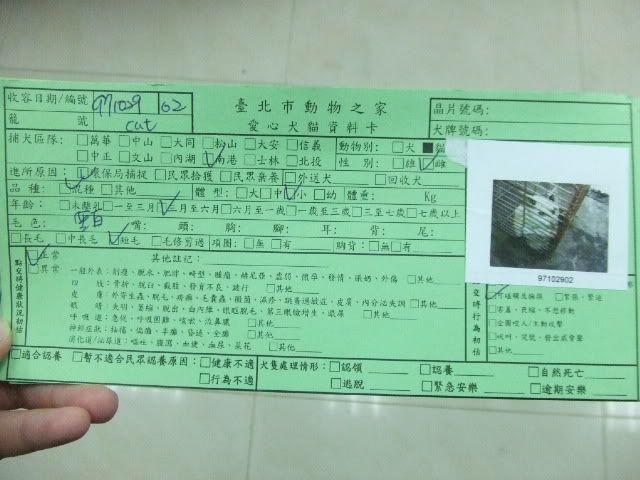 臺北市動物之家
愛心犬貓資料卡
收容日期/編號 971029 02
籠 號 cat
晶片號碼:
犬牌號碼:
捕犬區隊: □萬華 □中山 □大同 □松山 □大安 □信義
□中正 □文山 □內湖 □南港 □士林 □北投
動物別: □犬 ■貓
性 別: □雄 □雌
進所原因: □環保局捕捉 □民眾拾獲 □民眾棄養 □外送犬 □回收犬
品 種: □混種 □其他
體 型: □大 □中 □小 □幼 體重: Kg
年齡: □未離乳 □一至三月 □三至六月 □六月至一歲 □一歲至三歲 □三至七歲 □七歲以上
毛 色: 黑白 嘴: 頭: 胸: 腳: 耳: 背: 尾:
□長毛 □中長毛 □短毛 □毛修剪過 項圈: □無 □有 胸背: □無 □有
97102902
點交時健康狀況初估
□正常
□異常
其他註記:
一般外表: 削瘦、脫水、肥胖、畸型、腫瘤、赫尼亞、虛弱、懷孕、發情、漲奶、外傷 □其他
四 肢: 骨折、脫臼、截肢、發育不良、跛行 □其他
皮 膚: 外寄生蟲、脫毛、疥癬、毛囊蟲、黴菌、濕疹、跳蚤過敏症、皮膚、內分泌失調 □其他
眼 睛: 失明、萎縮、脫出、白內障、眼眶脫毛、第三眼瞼增生、眼屎 □其他
呼 吸 道: 急促、呼吸困難、咳嗽、流鼻膿 □其他
神經症狀: 抽搐、偏癱、半癱、昏迷、全癱 □其他
消化道/泌尿道: 嘔吐、腹瀉、血便、血尿、菜花 □其他
交 時行為初估
□可碰觸或撫摸 □緊張、緊迫
□害羞、畏縮、不想移動
□企圖咬人/主動攻擊
□吠叫、哭號、發出威脅聲
□其他
□適合認養 □暫不適合民眾認養原因: □健康不適
□行為不適
犬隻處理情形: □認領 □認養 □自然死亡
□逃脫 □緊急安樂 □逾期安樂